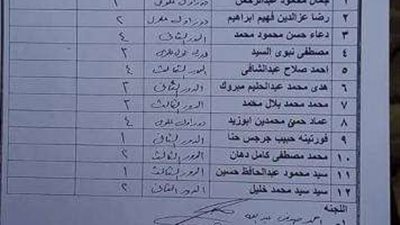 ١ جمال محمود عبدالرحمن دور اول علوى ١
٢ رضا عزالدين فهيم ابراهيم دور اول علوى ٢
٣ دعاء حسن محمود محمد الدور الثانى ٤
٤ مصطفى نبوى السيد دور اول علوى ٣
٥ احمد صلاح عبدالشافى الدور الثالث ٤
٦ هدى محمد عبدالحليم مبروك الدور الثانى ٣
٧ محمد محمد بلال محمد الدور الثالث ٣
٨ عماد حمى محمدين ابوزيد دور اول علوى ٤
٩ فورتينه حبيب جرجس حنا الدور الثانى ١
١٠ محمد مصطفى كامل دهان الدور الثالث ٢
١١ سيد محمود عبدالحافظ حسين الدور الثالث ١
١٢ سيد سيد محمد خليل الدور الثانى ٢
اللجنه
احمد